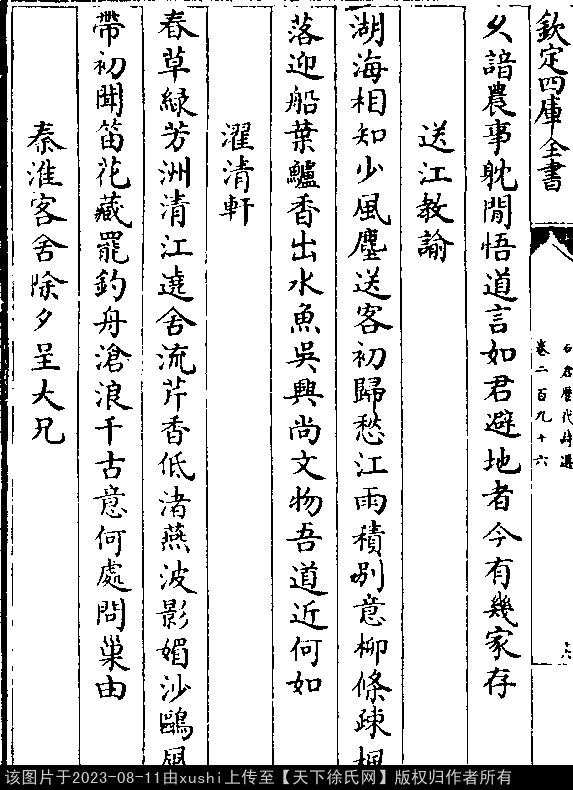 欽定四庫全書
石倉歷代詩選
卷二百九十六
久諳農事躭閒悟道言如君避地者今有幾家存
送江教諭
湖海相知少風塵送客初歸愁江雨積别意柳條疎楓
落迎船葉鱸香出水魚吳興尚文物吾道近何如
濯清軒
春草綠芳洲清江遶舍流芹香低渚燕波影媚沙鷗風
帶初聞笛花藏罷釣舟滄浪千古意何處問巢由
秦淮客舍除夕呈大兄
该图片于2023-08-11由xushi上传至【天下徐氏网】版权归作者所有